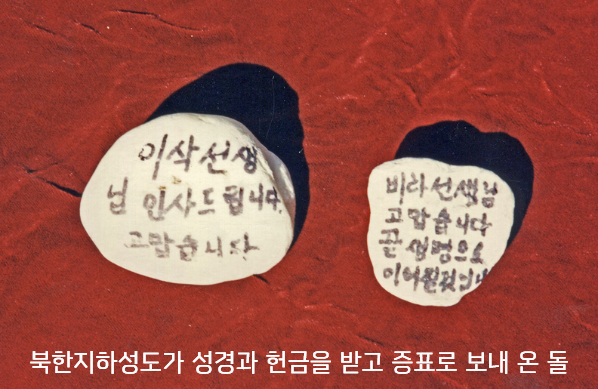 이삭선생
님 인사드립니다.
고맙습니다
비라선생님
고맙습니다
곧 생명으로
북한지하성도가 성경과 헌금을 받고 증표로 보내 온 돌